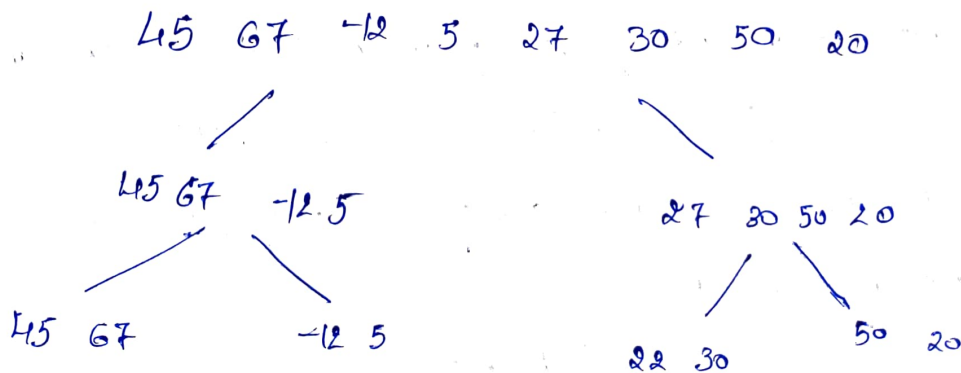 45 67 -12 5 27 30 50 20
45 67 -12 5 27 30 50 20
45 67 -12 5 22 30 50 20